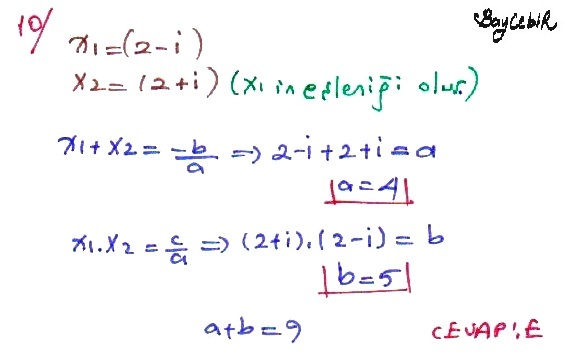 10/
BayCebiR
x1=(2-i)
x2=(2+i) (x1 in eşleniği olur.)
x1+x2=-b/a ⇒ 2-i+2+i=a
|a=4|
x1.x2=c/a ⇒ (2+i).(2-i)=b
|b=5|
a+b=9
CEVAP:E